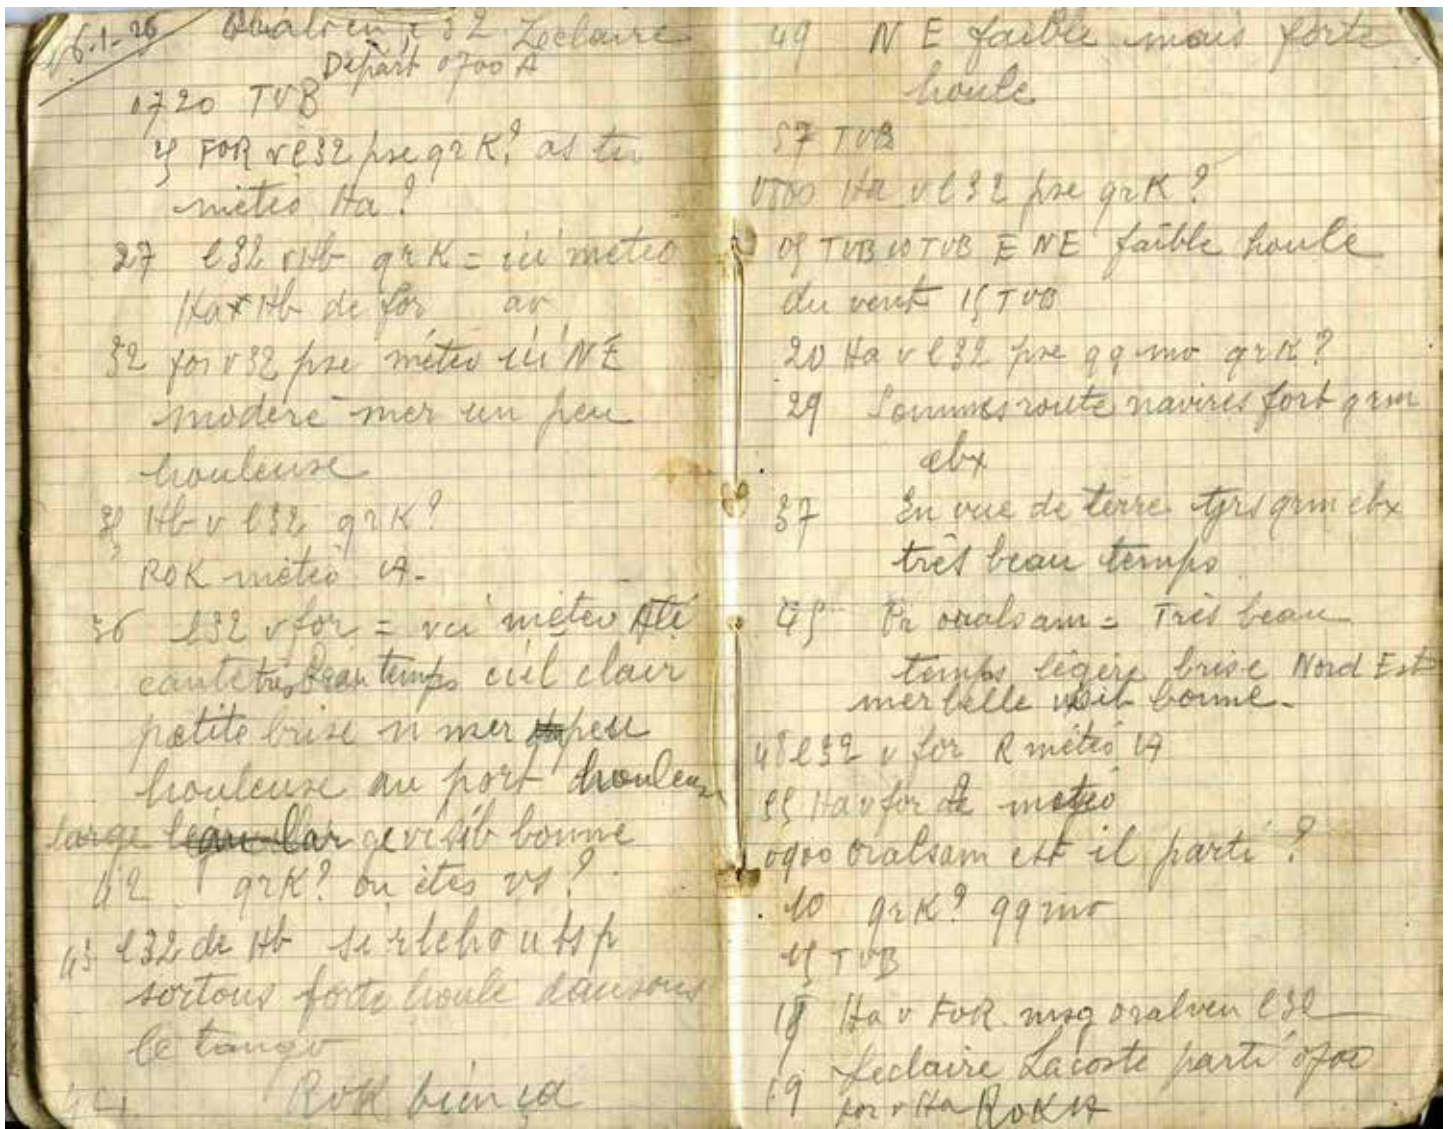 6-1-26 Oralven l 32 Leclaire
Départ 0700 A
0720 TVB
FOR v l32 pse qrK? as tu
météo Ha?
27 l32 v Hb qrK = ici météo
Ha + Hb de for ar
32 for v 32 pse météo ici NE
modéré mer un peu
houleuse
35 Hb v l32 qrK?
ROK météo VA-
36 l32 v for = vci météo
temps ciel clair
petite brise n mer peu
houleuse au port houleuse
large ge visib bonne
42 qrK? ou êtes vs?
43 l32 de Hb
sortons forte houle dansons
le tango
ROK bien
49 NE faible mais forte
houle
57 TVB
0800 Ha v l32 pse qrK?
05 TVB TVB E NE faible houle
du vent 15 TVB
20 Ha v l32 pse qq mo qrK?
29 Sommes route navires fort qrm
ebx
37 En vue de terre tjrs qrm ebx
très beau temps
45 Pr oralsam = Très beau
temps légère brise Nord Est
mer belle visib bonne-
48 l32 v for R météo VA
55 Ha v for météo
0900 Oralsam est il parti?
10 qrK? qq mo
15 TVB
18 Ha v FOR msg oralven l32
Leclaire Lacoste parti 0700
19 for v Ha ROK VA